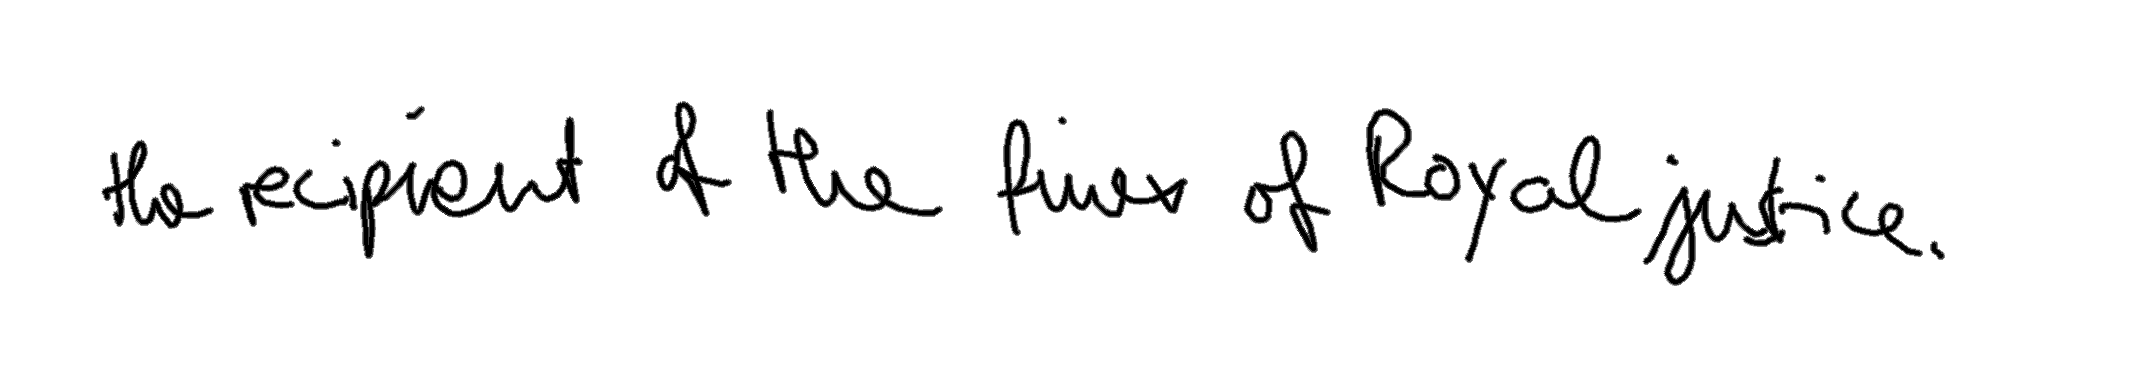 the recipient of the fines of Royal justice.